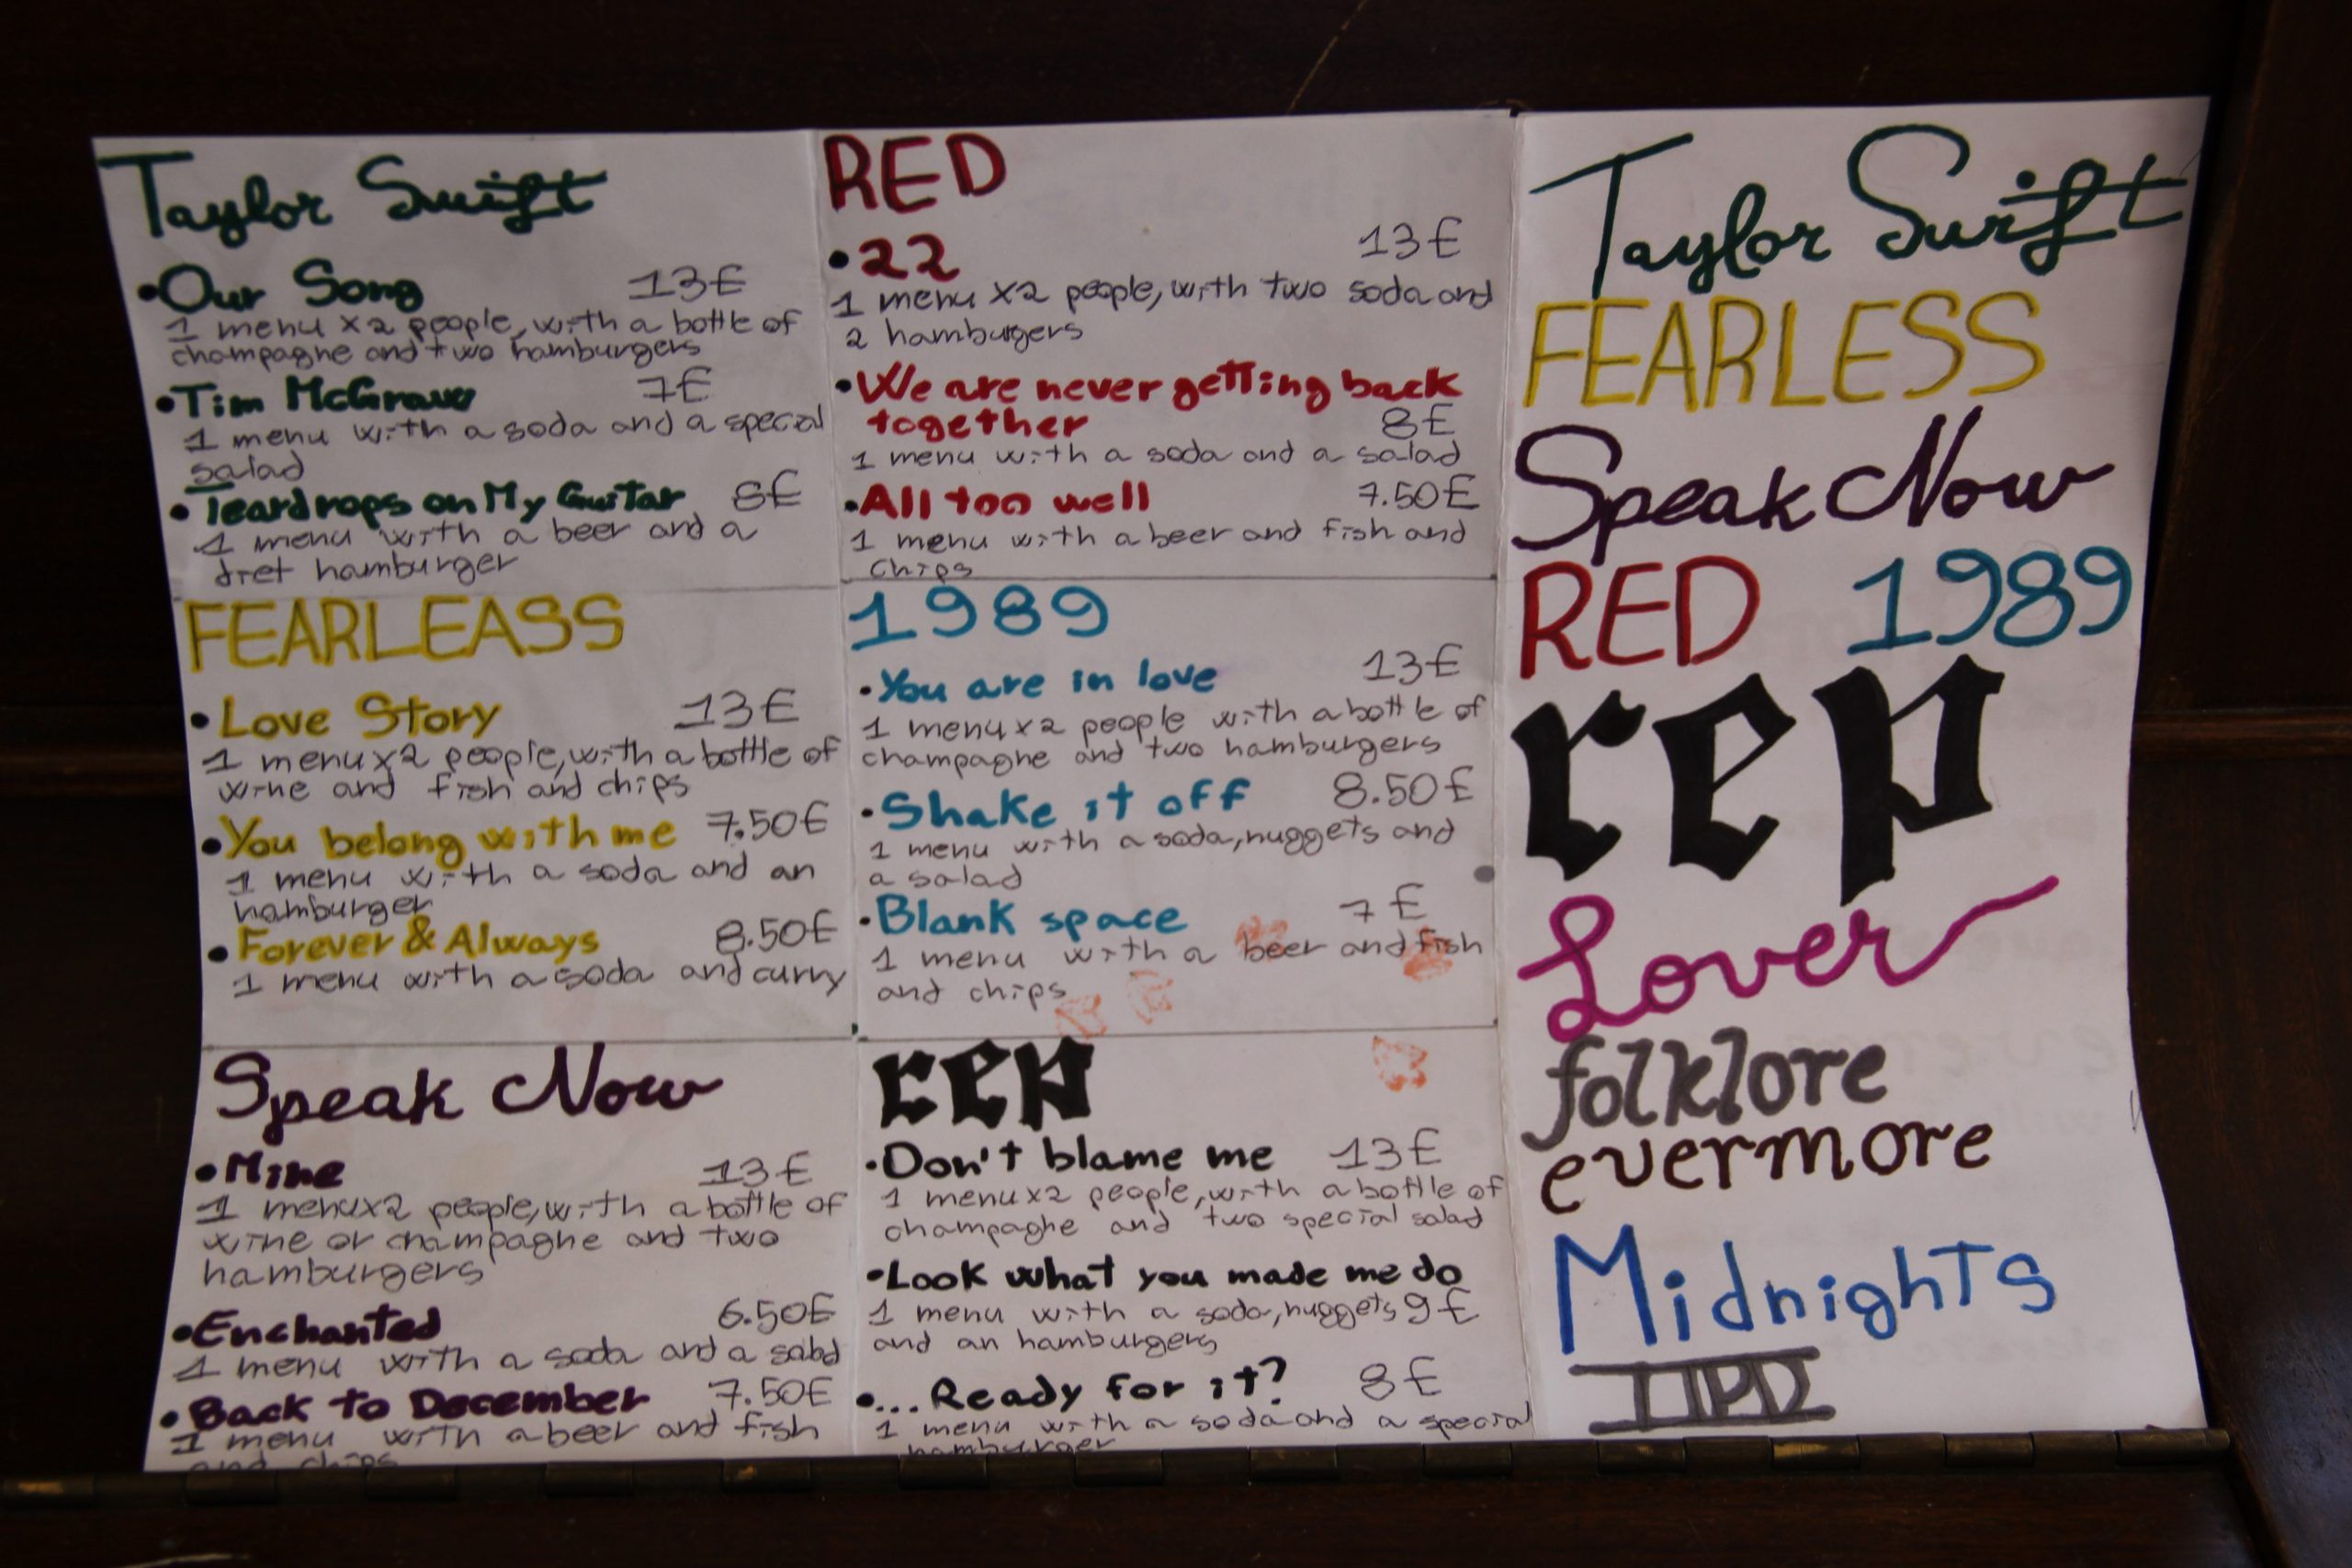 Taylor Swift
•Our Song 13€
1 menu x2 people, with a bottle of
champagne and two hamburgers
•Tim McGraw 7€
1 menu with a soda and a special
salad
•Teardrops on My Guitar 8€
1 menu with a beer and a
diet hamburger
FEARLEASS
•Love Story 13€
1 menu x2 people, with a bottle of
wine and fish and chips
•You belong with me 7.50€
1 menu with a soda and an
hamburger
•Forever & Always 8.50€
1 menu with a soda and curry
Speak Now
•Mine 13€
1 menu x2 people, with a bottle of
wine or champagne and two
hamburgers
•Enchanted 6.50€
1 menu with a soda and a salad
•Back to December 7.50€
1 menu with a beer and fish
and chips
RED
•22 13€
1 menu x2 people, with two soda and
2 hamburgers
•We are never getting back
together 8€
1 menu with a soda and a salad
•All too well 7.50€
1 menu with a beer and fish and
chips
1989
•You are in love 13€
1 menu x2 people with a bottle of
champagne and two hamburgers
•Shake it off 8.50€
1 menu with a soda, nuggets and
a salad
•Blank space 7€
1 menu with a beer and fish
and chips
rep
•Don't blame me 13€
1 menu x2 people, with a bottle of
champagne and two special salad
•Look what you made me do
1 menu with a soda, nuggets 9€
and an hamburgers
•...Ready for it? 8€
1 menu with a soda and a special
hamburger
Taylor Swift
FEARLESS
Speak Now
RED 1989
rep
Lover
folklore
evermore
Midnights
TTPD